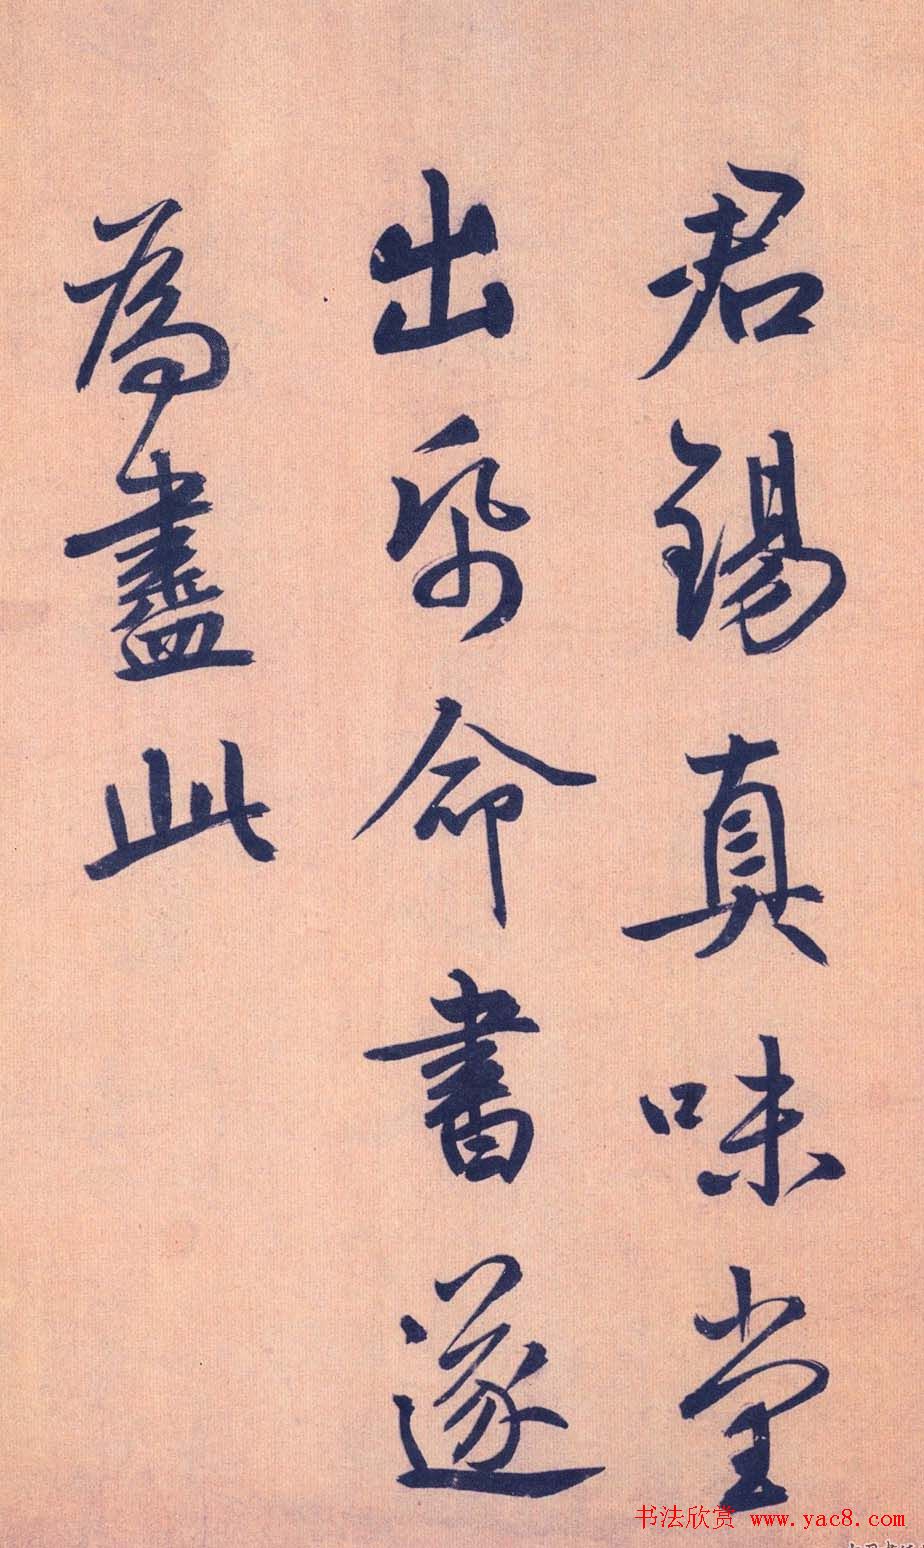 君錫真味堂
出帋命書遂
為盡此
书法欣赏 www.yac8.com